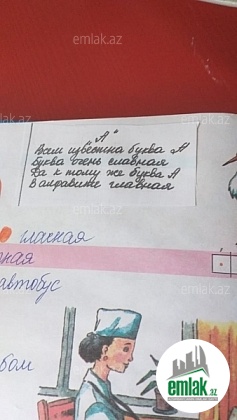 emlak.az
„А"
Всем известна буква А
Буква очень славная
Да к тому же буква А
В алфавите главная
гласная
ная
автобус
бом
emlak.az